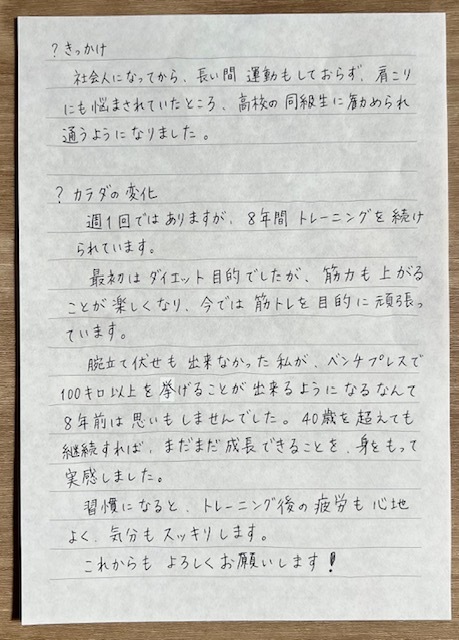 ? きっかけ
社会人になってから、長い間 運動もしておらず、肩こり
にも悩まされていたところ、高校の同級生に勧められ
通うようになりました。
? カラダの変化
週1回ではありますが、8年間 トレーニングを続け
られています。
最初はダイエット目的でしたが、筋力も上がる
ことが楽しくなり、今では筋トレを目的に頑張っ
ています。
腕立て伏せも出来なかった私が、ベンチプレスで
100キロ以上を挙げることが出来るようになるなんて
8年前は思いもしませんでした。40歳を超えても
継続すれば、まだまだ成長できることを、身をもって
実感しました。
習慣になると、トレーニング後の疲労も心地
よく、気分もスッキリします。
これからも よろしくお願いします!